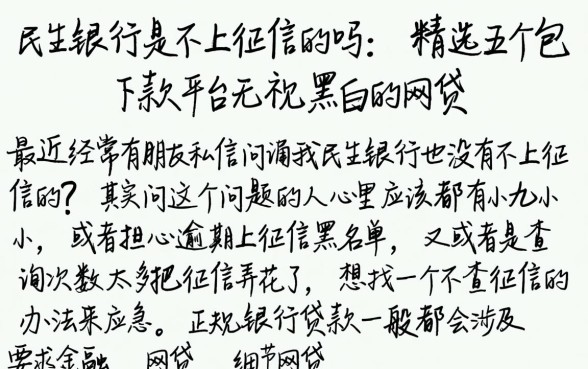 民生银行是不上征信的吗：精选五个包
下款平台无视黑白的网贷
最近经常有朋友私信问涌我民生银行也没有不上征
信的？其实问这个问题的人心里应该都有小九小
小，或者担心逾期上征信黑名单，又或者是查
询次数太多把征信弄花了，想找一个不查征信的
办法来应急。正规银行贷款一般都会涉及
要求金融 网贷 细节网贷